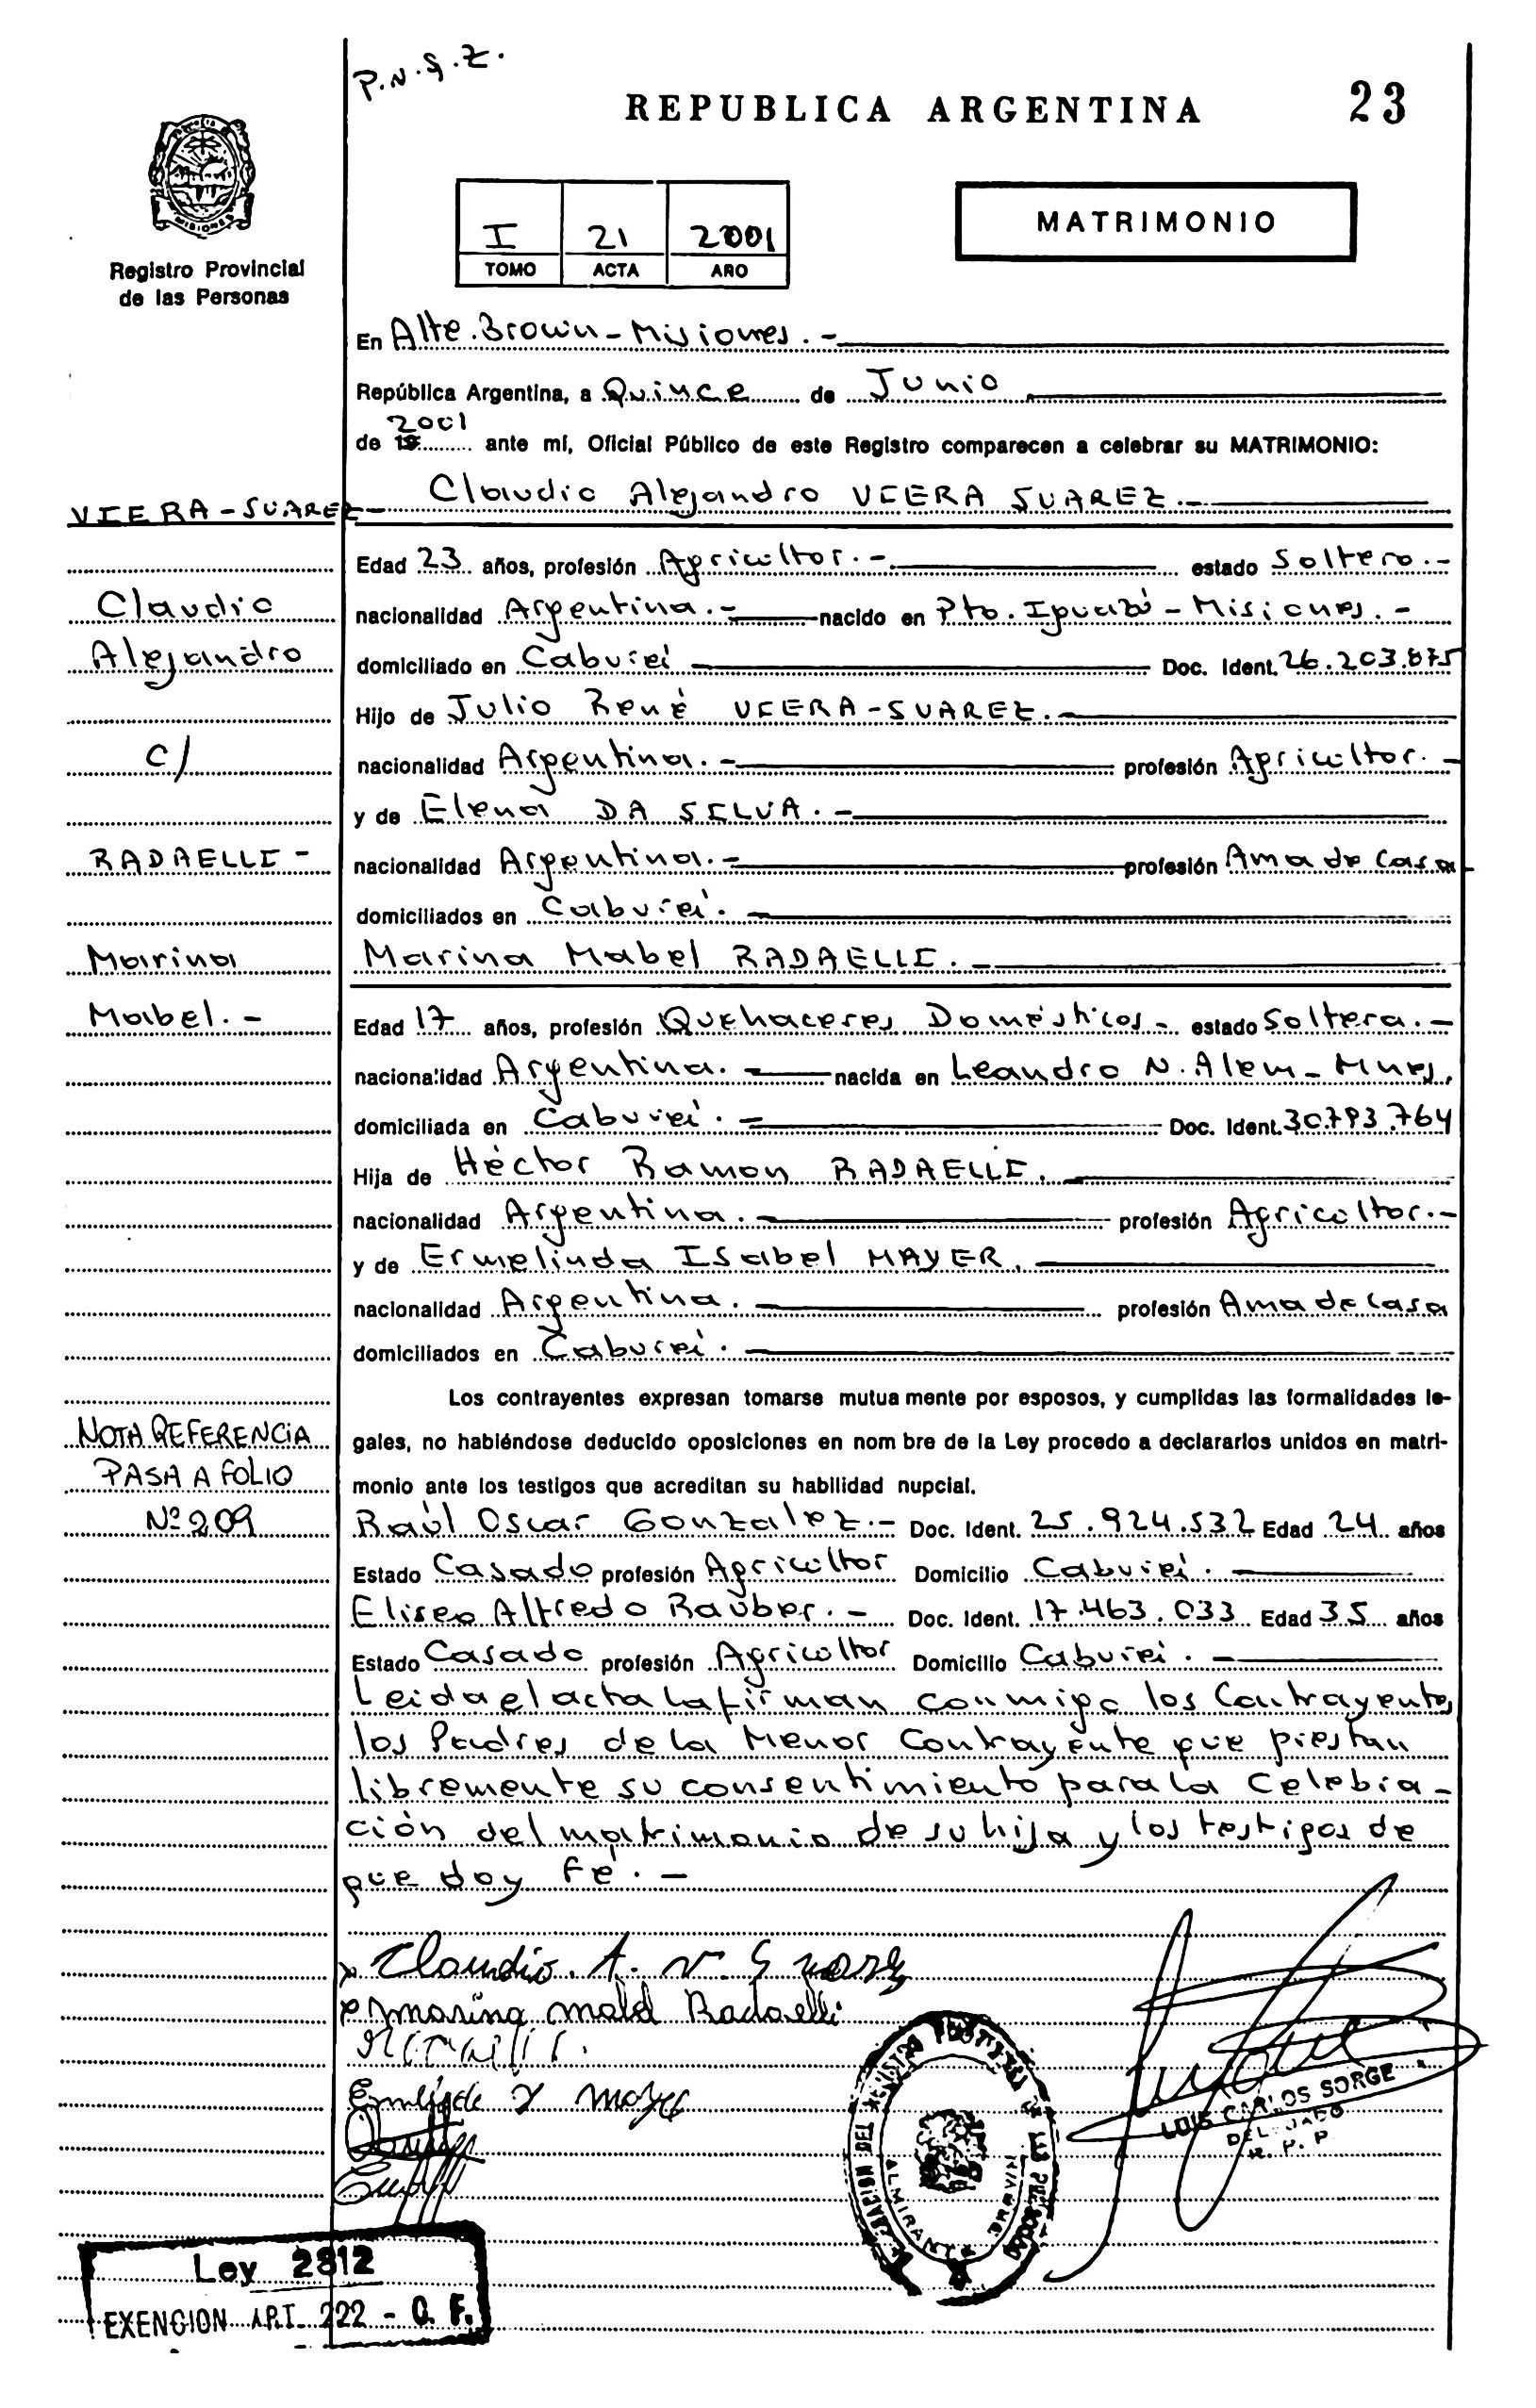 P.N.G.Z.
REPUBLICA ARGENTINA
23
MISIONES
Registro Provincial
de las Personas
I 21 2001
TOMO ACTA AÑO
MATRIMONIO
En Alte. Brown - Misiones. -
República Argentina, a Quince de Junio
2001
de 19 ante mí, Oficial Público de este Registro comparecen a celebrar su MATRIMONIO:
VIERA - SUAREZ - Claudio Alejandro VIERA SUAREZ. -
Edad 23 años, profesión Agricultor. - estado Soltero. -
Claudio nacionalidad Argentina. - nacido en Pto. Iguazú - Misiones. -
Alejandro domiciliado en Cabureí Doc. Ident. 26.203.875
Hijo de Julio René VIERA-SUAREZ. -
c/ nacionalidad Argentina. - profesión Agricultor. -
y de Elena DA SILVA. -
RADAELLI - nacionalidad Argentina. - profesión Ama de Casa -
domiciliados en Cabureí. -
Marina Marina Mabel RADAELLI. -
Mabel. - Edad 17 años, profesión Quehaceres Domésticos - estado Soltera. -
nacionalidad Argentina. - nacida en Leandro N. Alem - Mnes.
domiciliada en Cabureí. - Doc. Ident. 30.793.764
Hija de Héctor Ramon RADAELLI. -
nacionalidad Argentina. - profesión Agricultor. -
y de Ermelinda Isabel MAYER.
nacionalidad Argentina. profesión Ama de Casa
domiciliados en Cabureí.
Los contrayentes expresan tomarse mutua mente por esposos, y cumplidas las formalidades le-
NOTA REFERENCIA gales, no habiéndose deducido oposiciones en nom bre de la Ley procedo a declararlos unidos en matri-
PASA A FOLIO monio ante los testigos que acreditan su habilidad nupcial.
Nº 209 Raúl Oscar Gonzalez. - Doc. Ident. 25.924.532 Edad 24 años
Estado Casado profesión Agricultor Domicilio Cabureí.
Eliseo Alfredo Raúber. - Doc. Ident. 17.463.033 Edad 35 años
Estado Casado profesión Agricultor Domicilio Cabureí. -
Leida el acta la firman conmigo los Contrayentes
los Padres de la Menor Contrayente que prestan
libremente su consentimiento para la celebra-
ción del matrimonio de su hija y los testigos de
que doy fe. -
Claudio. A. V. Suarez
Marina Mabel Radaelli
LUIS CARLOS SORGE
DELEGADO
R. P. P.
Ley 2812
EXENCION ART. 222 - C. F.